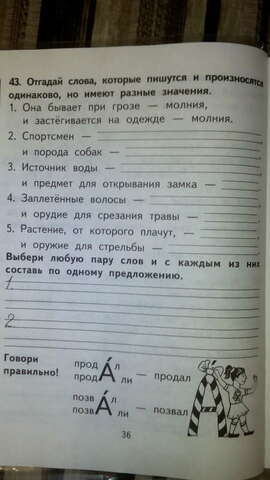 43. Отгадай слова, которые пишутся и произносятся
одинаково, но имеют разные значения.
1. Она бывает при грозе — молния,
и застёгивается на одежде — молния.
2. Спортсмен —
и порода собак —
3. Источник воды —
и предмет для открывания замка —
4. Заплетённые волосы —
и орудие для срезания травы —
5. Растение, от которого плачут, —
и оружие для стрельбы —
Выбери любую пару слов и с каждым из них
составь по одному предложению.
1.
2.
Говори
правильно!
прод А́ л
прод А́ ли — продал
позв А́ л
позв А́ ли — позвал
36